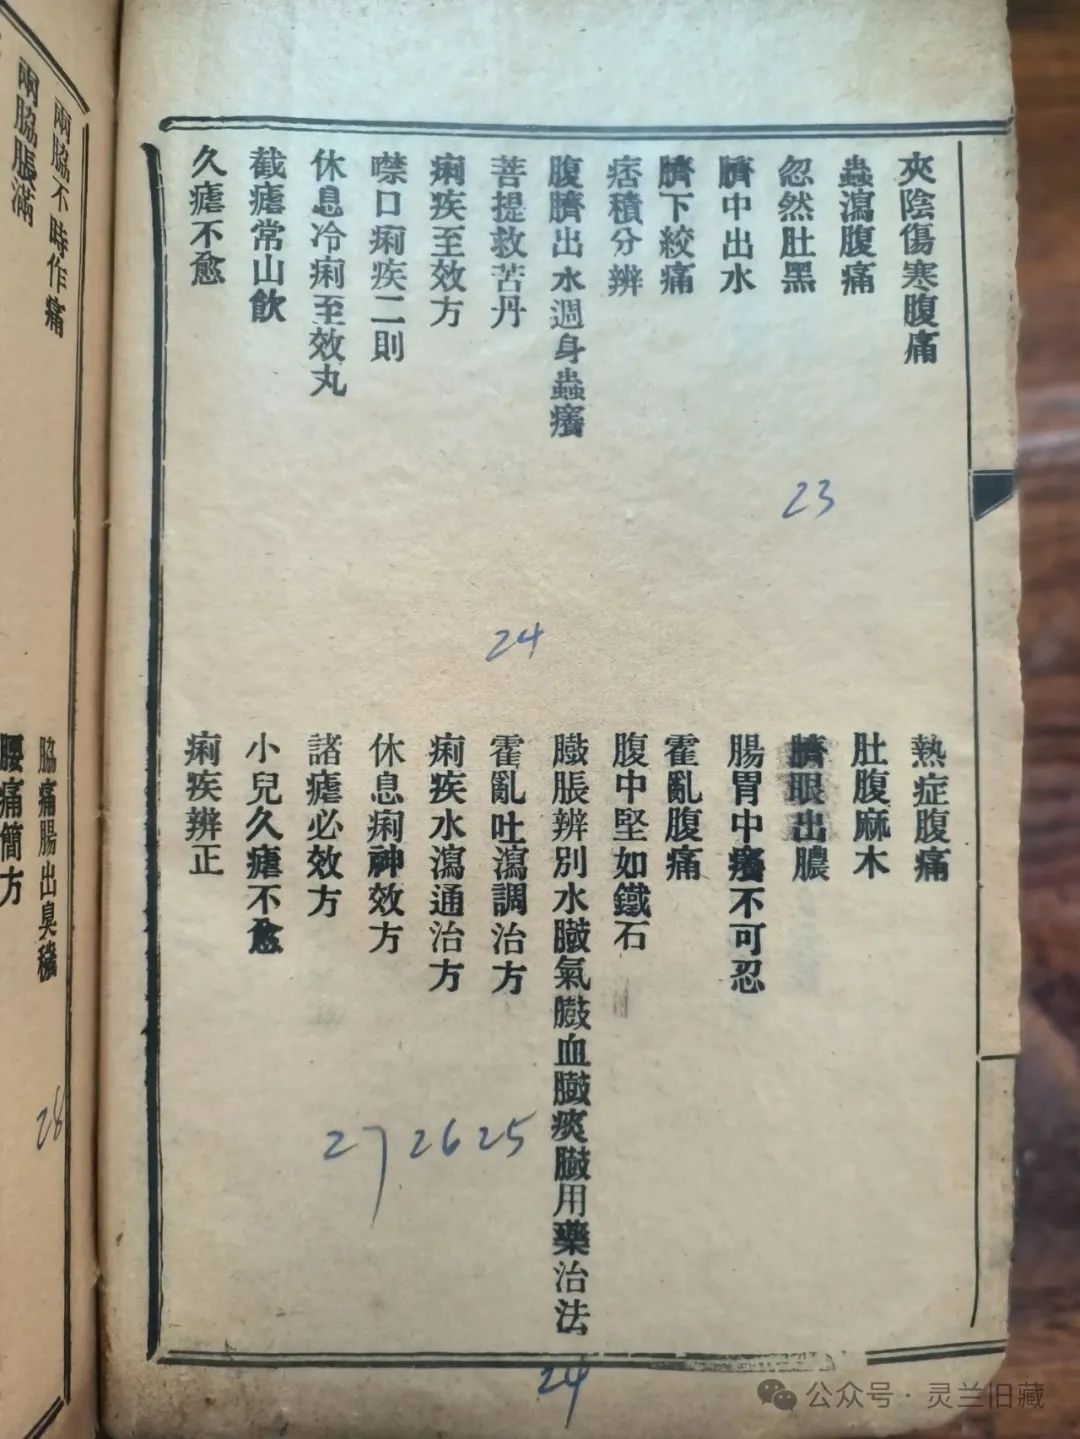 夾陰傷寒腹痛
熱症腹痛
蟲瀉腹痛
肚腹麻木
忽然肚黑
臍眼出膿
臍中出水
腸胃中癢不可忍
臍下絞痛
霍亂腹痛
痞積分辨
腹中堅如鐵石
腹臍出水週身蟲癢
臌脹辨別水臌氣臌血臌痰臌用藥治法
菩提救苦丹
霍亂吐瀉調治方
痢疾至效方
痢疾水瀉通治方
噤口痢疾二則
休息痢神效方
休息冷痢至效丸
諸瘧必效方
截瘧常山飲
小兒久瘧不愈
久瘧不愈
痢疾辨正
23
24
27 26 25
24
兩脇不時作痛
脇痛腸出臭穢
兩脇脹滿
腰痛簡方
28
公众号·灵兰旧藏